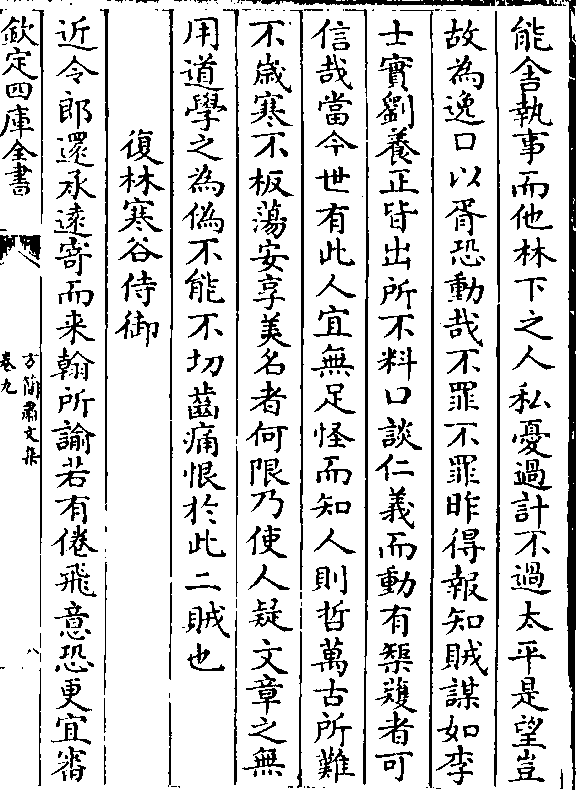 能舎執事而他林下之人私憂過計不過太平是望豈
故為逸口以胥恐動哉不罪不罪昨得報知賊謀如李
士實劉養正皆出所不料口談仁義而動有榘矱者可
信哉當今世有此人宜無足怪而知人則哲萬古所難
不歲寒不板蕩安享美名者何限乃使人疑文章之無
用道學之為偽不能不切齒痛恨於此二賊也
復林寒谷侍御
近令郎還承遠寄而来翰所諭若有倦飛意恐更宜審
欽定四庫全書
方簡肅文集
卷九
八